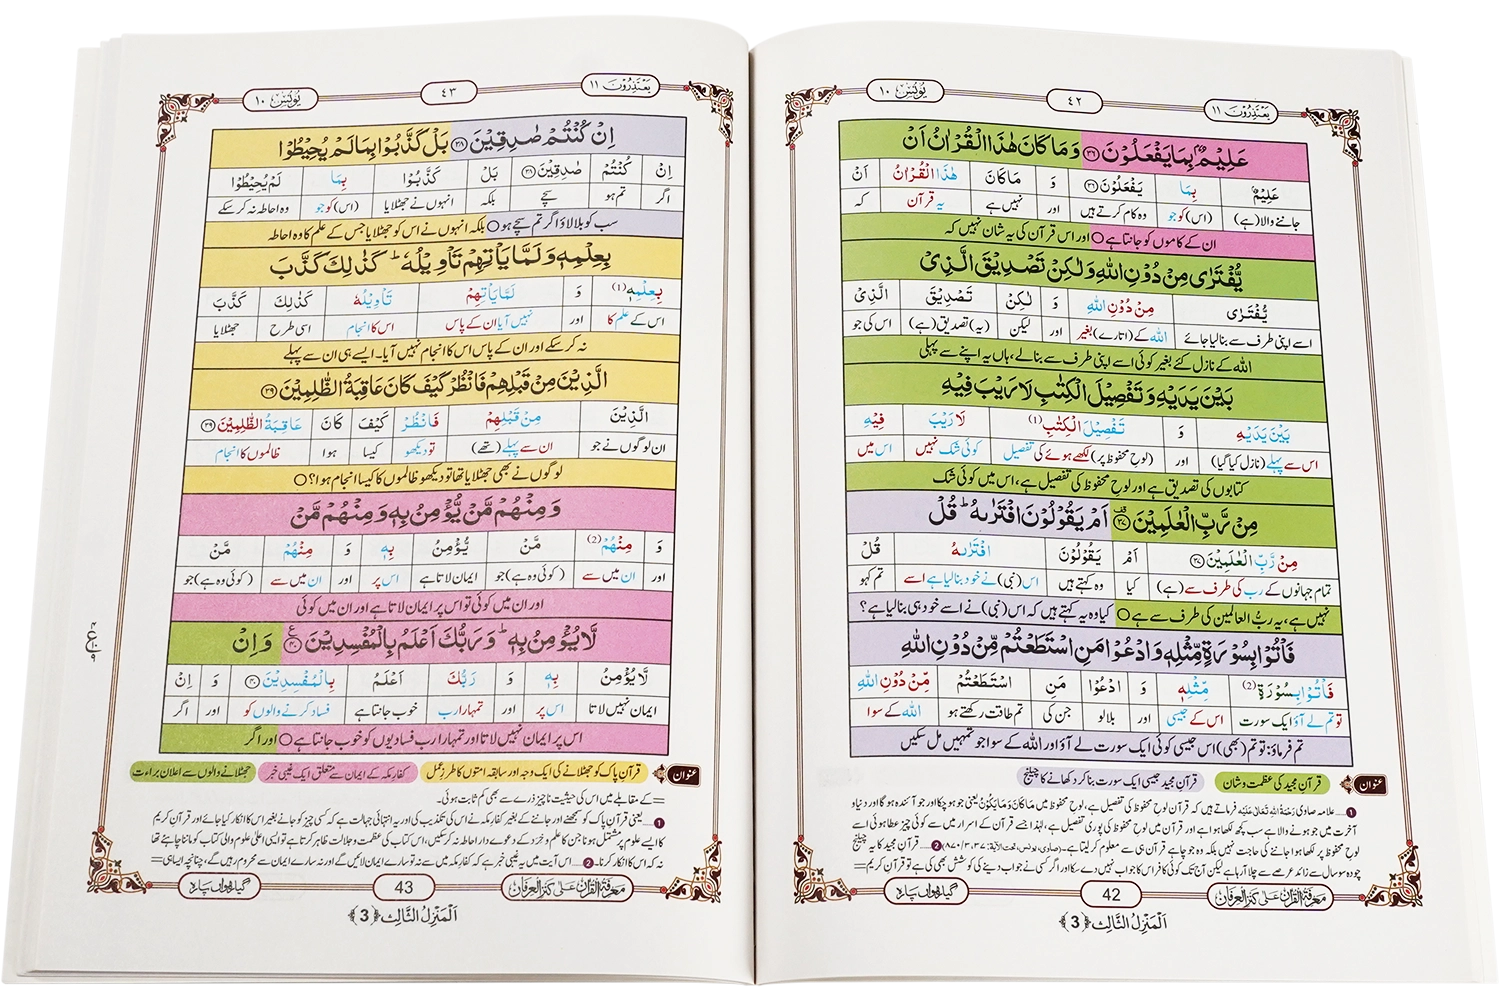 یَعْتَذِرُوْنَ ۱۱
٤٢
یُوْنُس ۱۰
عَلِیْمٌۢ بِمَا یَفْعَلُوْنَ ﴿۳۶﴾ وَ مَا كَانَ هٰذَا الْقُرْاٰنُ اَنْ
عَلِیْمٌۢ بِمَا یَفْعَلُوْنَ ﴿۳۶﴾ وَ مَا كَانَ هٰذَا الْقُرْاٰنُ اَنْ
جاننے والا (ہے) (اس) کو جو وہ کام کرتے ہیں اور نہیں ہے یہ قرآن کہ
ان کے کاموں کو جانتا ہے ○ اور اس قرآن کی یہ شان نہیں کہ
یُّفْتَرٰى مِنْ دُوْنِ اللّٰهِ وَ لٰكِنْ تَصْدِیْقَ الَّذِیْ
یُّفْتَرٰى مِنْ دُوْنِ اللّٰهِ وَ لٰكِنْ تَصْدِیْقَ الَّذِیْ
اسے اپنی طرف سے بنا لیا جائے اللہ کے (اتارے) بغیر اور لیکن (یہ) تصدیق (ہے) اس کی جو
اللہ کے نازل کئے بغیر کوئی اسے اپنی طرف سے بنالے، ہاں یہ اپنے سے پہلی
بَیْنَ یَدَیْهِ وَ تَفْصِیْلَ الْكِتٰبِ لَا رَیْبَ فِیْهِ
بَیْنَ یَدَیْهِ وَ تَفْصِیْلَ الْكِتٰبِ (1) لَا رَیْبَ فِیْهِ
اس سے پہلے (نازل کیا گیا) اور (لوح محفوظ پر) لکھے ہوئے کی تفصیل کوئی شک نہیں اس میں
کتابوں کی تصدیق ہے اور لوح محفوظ کی تفصیل ہے، اس میں کوئی شک
مِنْ رَّبِّ الْعٰلَمِیْنَ ﴿۳۷﴾ اَمْ یَقُوْلُوْنَ افْتَرٰىهُؕ قُلْ
مِنْ رَّبِّ الْعٰلَمِیْنَ ﴿۳۷﴾ اَمْ یَقُوْلُوْنَ افْتَرٰىهُ قُلْ
تمام جہانوں کے رب کی طرف سے (ہے) کیا وہ کہتے ہیں اس (نبی) نے خود بنالیا ہے اسے تم کہو
نہیں ہے، یہ ربُّ العالمین کی طرف سے ہے ○ کیا وہ یہ کہتے ہیں کہ اس (نبی) نے اسے خود ہی بنالیا ہے؟
فَاْتُوْا بِسُوْرَةٍ مِّثْلِهٖ وَ ادْعُوْا مَنِ اسْتَطَعْتُمْ مِّنْ دُوْنِ اللّٰهِ
فَاْتُوْا بِسُوْرَةٍ (2) مِّثْلِهٖ وَ ادْعُوْا مَنِ اسْتَطَعْتُمْ مِّنْ دُوْنِ اللّٰهِ
تو تم لے آؤ ایک سورت اس کے جیسی اور بلالو جن کی تم طاقت رکھتے ہو اللہ کے سوا
تم فرماؤ: تو تم (بھی) اس جیسی کوئی ایک سورت لے آؤ اور اللہ کے سوا جو تمہیں مل سکیں
عنوان قرآن مجید کی عظمت و شان قرآن مجید جیسی ایک سورت بنا کر دکھانے کا چیلنج
1 … علامہ صاوی رَحْمَةُ اللهِ تَعَالٰى عَلَيْهِ فرماتے ہیں کہ قرآن لوح محفوظ کی تفصیل ہے، لوح محفوظ میں مَا كَانَ وَ مَا يَكُوْنُ یعنی جو ہو چکا اور جو آئندہ ہو گا اور دنیا و
آخرت میں جو ہونے والا ہے سب کچھ لکھا ہوا ہے اور قرآن میں لوح محفوظ کی پوری تفصیل ہے، لہٰذا جسے قرآن کے اسرار میں سے کوئی چیز عطا ہوئی اسے
لوح محفوظ پر لکھا ہوا جاننے کی حاجت نہیں بلکہ وہ جو چاہے قرآن ہی سے معلوم کر لیتا ہے۔ (صاوی، یونس، تحت الآیۃ: ۳۷، ۳/ ۸۷۰) 2 … قرآن مجید کا یہ چیلنج
چودہ سو سال سے زائد عرصے سے چلا آ رہا ہے لیکن آج تک کوئی کافر اس کا جواب نہیں دے سکا اور اگر کسی نے جواب دینے کی کوشش بھی کی ہے تو قرآن کریم ==
مَعْرِفَةُ الْقُرْاٰن عَلٰی كَنْزُ الْعِرْفَان
42
گیارھواں پارہ
اَلْمَنْزِلُ الثَّالِث ﴿3﴾
یَعْتَذِرُوْنَ ۱۱
٤٣
یُوْنُس ۱۰
اِنْ كُنْتُمْ صٰدِقِیْنَ ﴿۳۸﴾ بَلْ كَذَّبُوْا بِمَا لَمْ یُحِیْطُوْا
اِنْ كُنْتُمْ صٰدِقِیْنَ ﴿۳۸﴾ بَلْ كَذَّبُوْا بِمَا لَمْ یُحِیْطُوْا
اگر تم ہو سچے بلکہ انہوں نے جھٹلایا (اس) کو جو وہ احاطہ نہ کر سکے
سب کو بلا لاؤ اگر تم سچے ہو ○ بلکہ انہوں نے اس کو جھٹلایا جس کے علم کا وہ احاطہ
بِعِلْمِهٖ وَ لَمَّا یَاْتِهِمْ تَاْوِیْلُهٗؕ كَذٰلِكَ كَذَّبَ
بِعِلْمِهٖ (1) وَ لَمَّا یَاْتِهِمْ تَاْوِیْلُهٗ كَذٰلِكَ كَذَّبَ
اس کے علم کا اور نہیں آیا ان کے پاس اس کا انجام اسی طرح جھٹلایا
نہ کر سکے اور ان کے پاس اس کا انجام نہیں آیا۔ ایسے ہی ان سے پہلے
الَّذِیْنَ مِنْ قَبْلِهِمْ فَانْظُرْ كَیْفَ كَانَ عَاقِبَةُ الظّٰلِمِیْنَ ﴿۳۹﴾
الَّذِیْنَ مِنْ قَبْلِهِمْ فَانْظُرْ كَیْفَ كَانَ عَاقِبَةُ الظّٰلِمِیْنَ ﴿۳۹﴾
ان لوگوں نے جو ان سے پہلے (تھے) تو دیکھو کیسا ہوا ظالموں کا انجام
لوگوں نے بھی جھٹلایا تھا تو دیکھو ظالموں کا کیسا انجام ہوا؟ ○
وَ مِنْهُمْ مَّنْ یُّؤْمِنُ بِهٖ وَ مِنْهُمْ مَّنْ
وَ مِنْهُمْ (2) مَّنْ یُّؤْمِنُ بِهٖ وَ مِنْهُمْ مَّنْ
اور ان میں سے (کوئی وہ ہے) جو ایمان لاتا ہے اس پر اور ان میں سے (کوئی وہ ہے) جو
اور ان میں کوئی تو اس پر ایمان لاتا ہے اور ان میں کوئی
لَّا یُؤْمِنُ بِهٖؕ وَ رَبُّكَ اَعْلَمُ بِالْمُفْسِدِیْنَ ﴿۴۰﴾ وَ اِنْ
لَّا یُؤْمِنُ بِهٖ وَ رَبُّكَ اَعْلَمُ بِالْمُفْسِدِیْنَ ﴿۴۰﴾ وَ اِنْ
ایمان نہیں لاتا اس پر اور تمہارا رب خوب جانتا ہے فساد کرنے والوں کو اور اگر
اس پر ایمان نہیں لاتا اور تمہارا رب فسادیوں کو خوب جانتا ہے ○ اور اگر
عنوان قرآن پاک کو جھٹلانے کی ایک وجہ اور سابقہ امتوں کا طرزِ عمل کفار مکہ کے ایمان سے متعلق ایک غیبی خبر جھٹلانے والوں سے اعلان براءت
== کے مقابلے میں اس کی حیثیت ناچیز ذرے سے بھی کم ثابت ہوئی۔
1 … یعنی قرآن پاک کو سمجھنے اور جاننے کے بغیر کفار مکہ نے اس کی تکذیب کی اور یہ انتہائی جہالت ہے کہ کسی چیز کو جانے بغیر اس کا انکار کیا جائے اور قرآن کریم
کا ایسے علوم پر مشتمل ہونا جن کا علم و خرد کے دعوے دار احاطہ نہ کر سکیں، اس کتاب کی عظمت و جلالت ظاہر کرتا ہے تو ایسی اعلیٰ علوم والی کتاب کو ماننا چاہئے تھا
نہ کہ اس کا انکار کرنا۔ 2 … اس آیت میں یہ غیبی خبر ہے کہ کفار مکہ میں سے نہ تو سارے ایمان لائیں گے اور نہ سارے ایمان سے محروم رہیں گے، چنانچہ ایسا ہی ==
مَعْرِفَةُ الْقُرْاٰن عَلٰی كَنْزُ الْعِرْفَان
43
گیارھواں پارہ
اَلْمَنْزِلُ الثَّالِث ﴿3﴾